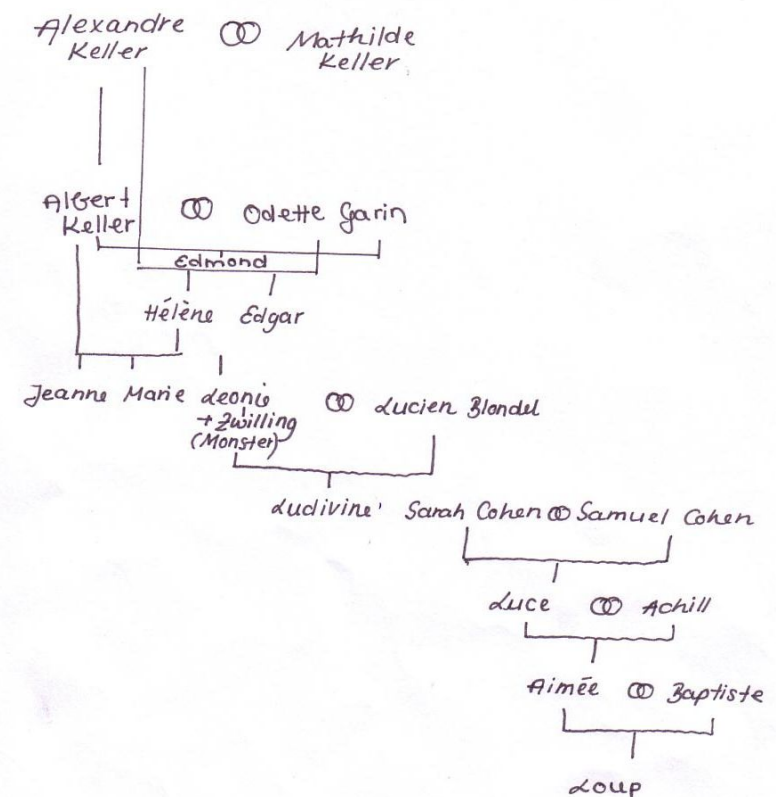 Alexandre Keller ⚭ Mathilde Keller
Albert Keller ⚭ Odette Garin
Edmond
Hélène Edgar
Jeanne Marie Leonie ⚭ Lucien Blondel
+ Zwilling
(Monster)
Ludivine Sarah Cohen ⚭ Samuel Cohen
Luce ⚭ Achill
Aimée ⚭ Baptiste
Loup